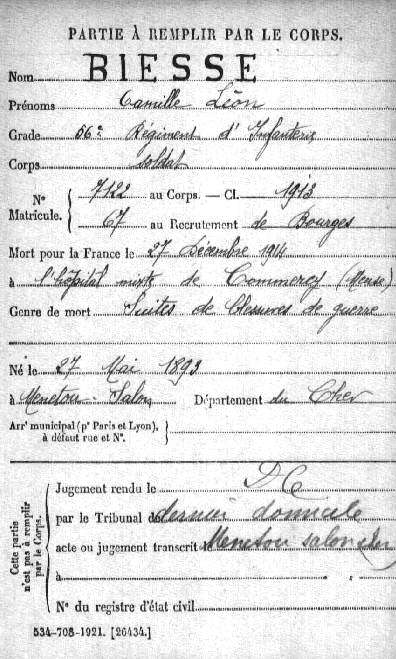 PARTIE À REMPLIR PAR LE CORPS.
Nom BIESSE
Prénoms Camille Léon
Grade 56e Régiment d'Infanterie
Corps soldat
N° Matricule. { 7122 au Corps. — Cl. 1913
67 au Recrutement de Bourges
Mort pour la France le 27 Décembre 1914
à l'hôpital mixte de Commercy (Meuse)
Genre de mort Suites de blessures de guerre
Né le 27 Mai 1893
à Menetou-Salon Département du Cher
Arrt municipal (pr Paris et Lyon),
à défaut rue et N°.
Cette partie n'est pas à remplir par le Corps.
Jugement rendu le DC
par le Tribunal de dernier domicile
acte ou jugement transcrit le Menetou salon cher
à
N° du registre d'état civil
534-708-1921. [26434.]